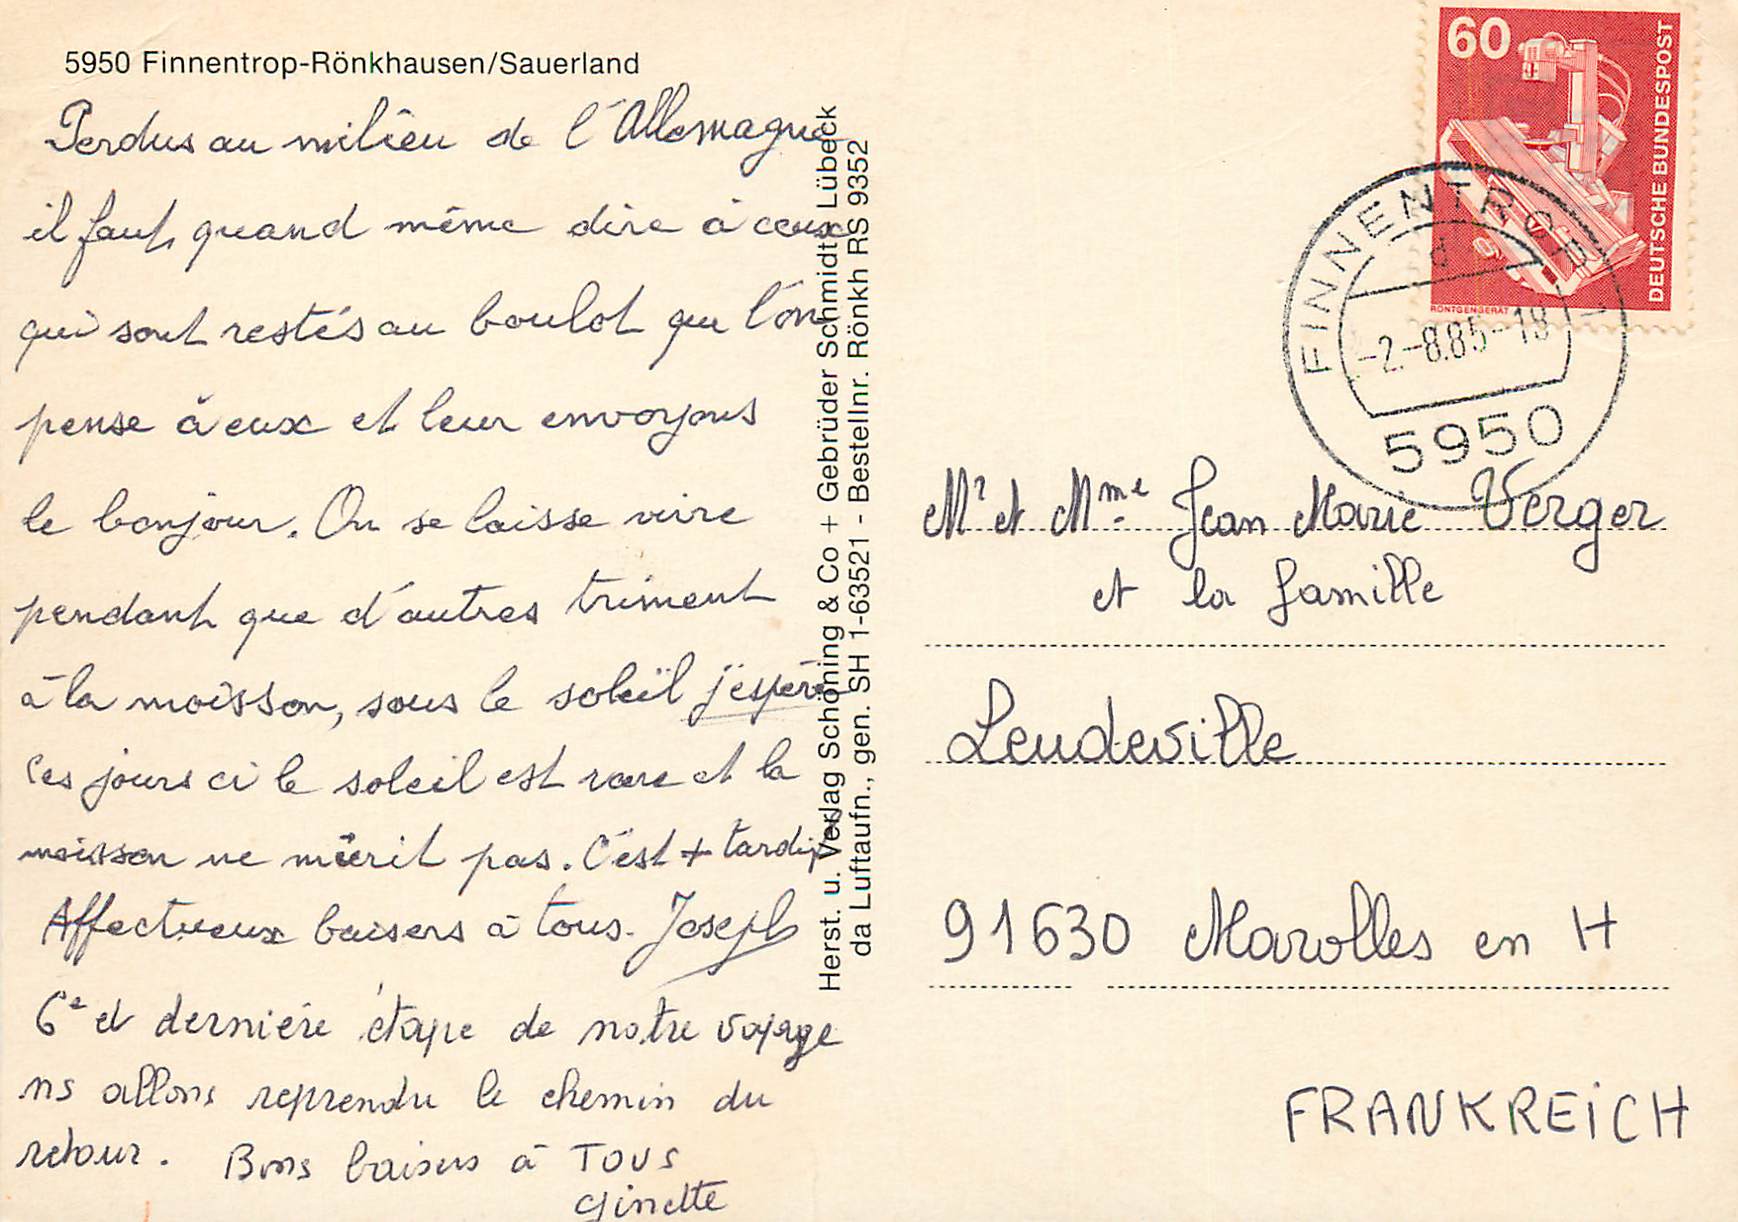 5950 Finnentrop-Rönkhausen/Sauerland
Perdus au milieu de l'Allemagne
il faut quand même dire à ceux
qui sont restés au boulot que l'on
pense à eux et leur envoyons
le bonjour. On se laisse vivre
pendant que d'autres triment
à la moisson, sous le soleil j'espère
Ces jours ci le soleil est rare et la
moisson ne mûrit pas. C'est + tardif
Affectueux baisers à tous. Joseph
6e et dernière étape de notre voyage
ns allons reprendre le chemin du
retour. Bons baisers à TOUS
Ginette
Herst. u. Verlag Schöning & Co + Gebrüder Schmidt, Lübeck
da Luftaufn., gen. SH 1-63521 - Bestellnr. Rönkh RS 9352
60
DEUTSCHE BUNDESPOST
RÖNTGENGERÄT
FINNENTROP 1
d
-2.-8.85-18
5950
Mr et Mme Jean Marie Verger
et la famille
Leudeville
91630 Marolles en H
FRANKREICH